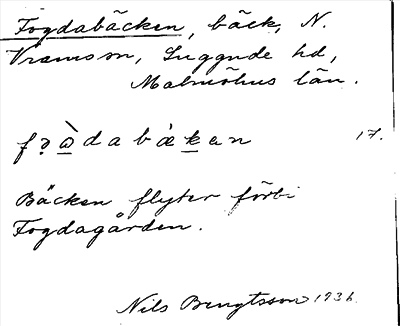 Fogdabäcken, bäck, N.
Vramsom, Luggude hd,
Malmöhus län.
17.
Bäcken flyter förbi
Fogdagården.
Nils Bengtsson 1936.